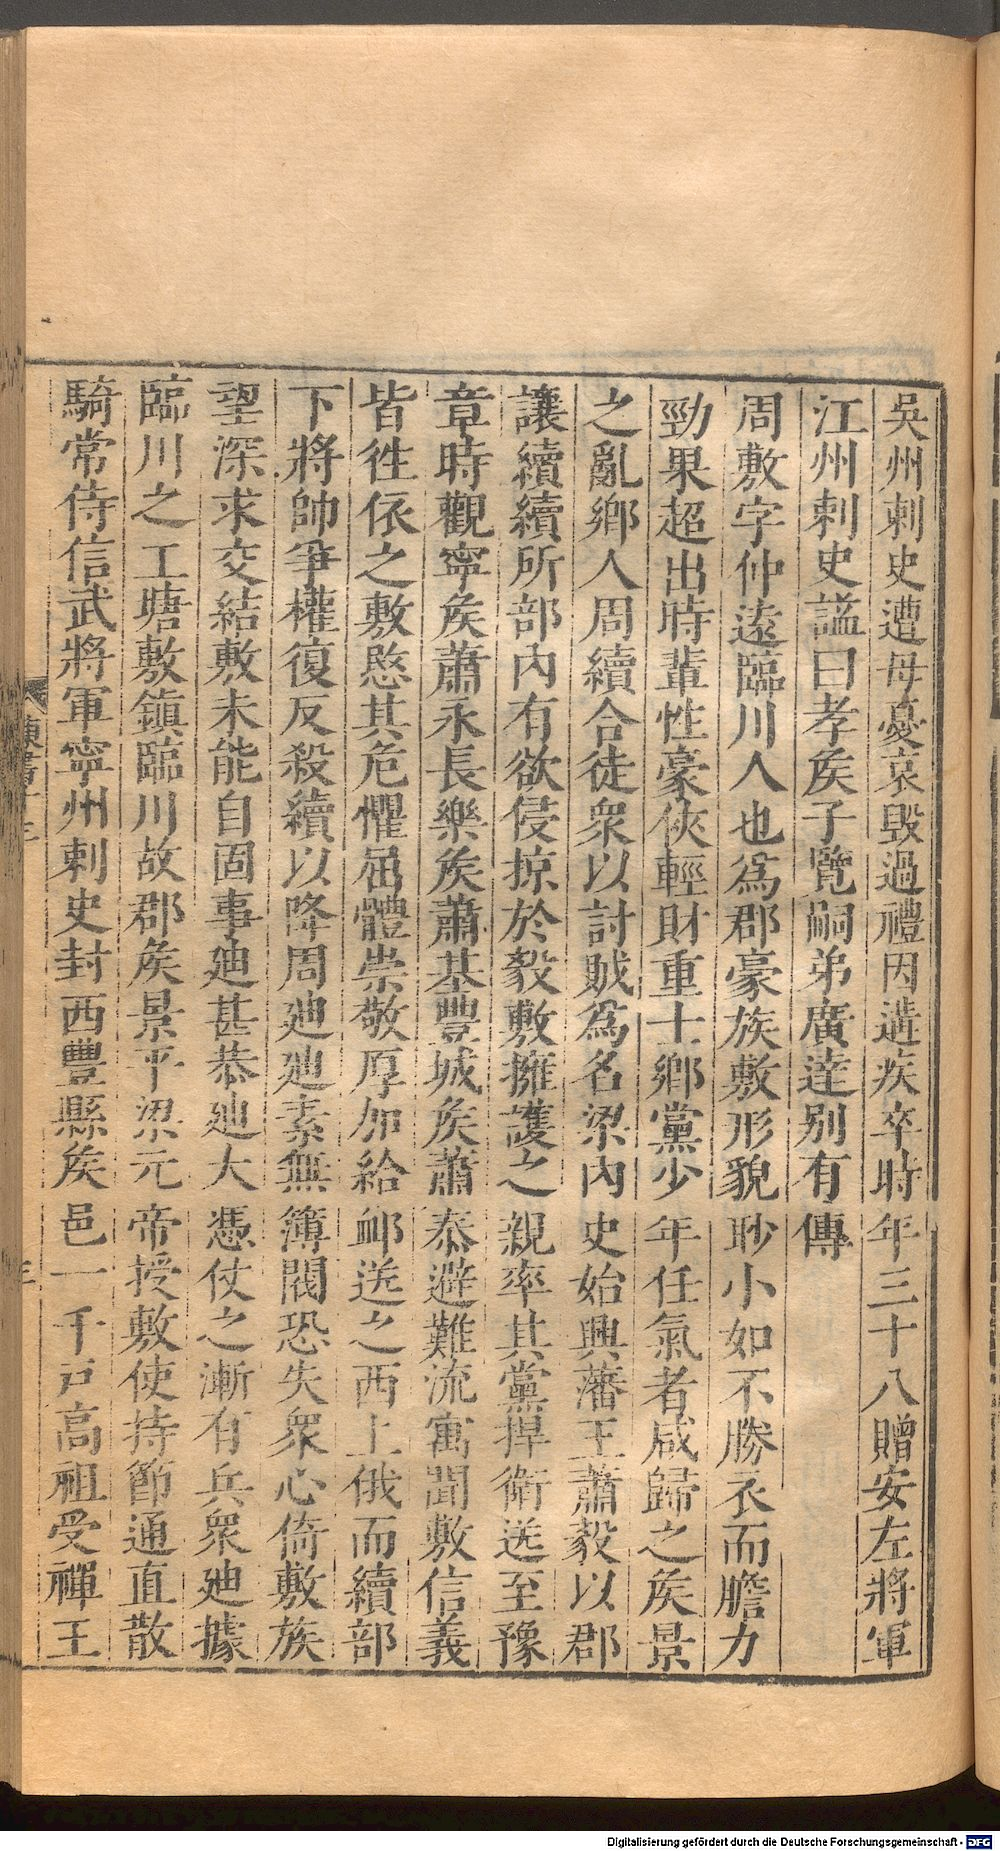 吳州刺史遭母憂哀毀過禮因遘疾卒時年三十八贈安左將軍
江州刺史諡曰孝矦子覽嗣弟廣達别有傳
周敷字仲遠臨川人也為郡豪族敷形貌眇小如不勝衣而膽力
勁果超出時輩性豪俠輕財重士鄉黨少年任氣者咸歸之矦景
之亂鄉人周續合徒衆以討賊為名梁內史始興藩王蕭毅以郡
讓續續所部內有欲侵掠於毅敷擁護之親率其黨捍衛送至豫
章時觀寧矦蕭永長樂矦蕭基豐城矦蕭泰避難流寓聞敷信義
皆徃依之敷愍其危懼屈體崇敬厚加給䘏送之西上俄而續部
下將帥爭權復反殺續以降周廸廸素無簿閥恐失衆心倚敷族
望深求交結敷未能自固事廸甚恭廸大憑仗之漸有兵衆廸據
臨川之工塘敷鎮臨川故郡矦景平梁元帝授敷使持節通直散
騎常侍信武將軍寧州刺史封西豐縣矦邑一千戸高祖受禪王
陳書十三
三
Digitalisierung gefördert durch die Deutsche Forschungsgemeinschaft - DFG